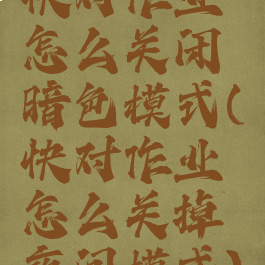 快对作业
怎么关闭
暗色模式(
快对作业
怎么关掉
夜间模式)